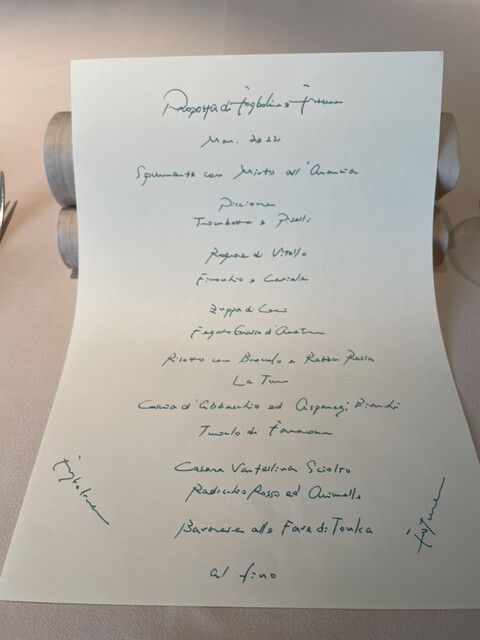 Proposta di
Mar. 2022
Spumante con Misto all'Arancia
Piccione
Trombetta e Piselli
Ragone di Vitello
Finocchio e Caviale
Zuppa di Ceci
Fegato Grasso d'Anatra
Risotto con Broccolo e Razza Rossa
La Tur
Coscia d'Abbacchio ed Asparagi Bianchi
Tumulo di
Casera Valtellina Sciolto
Radicchio Rosso ed Animelle
Bavarese alle Fave di Tonka
al fino